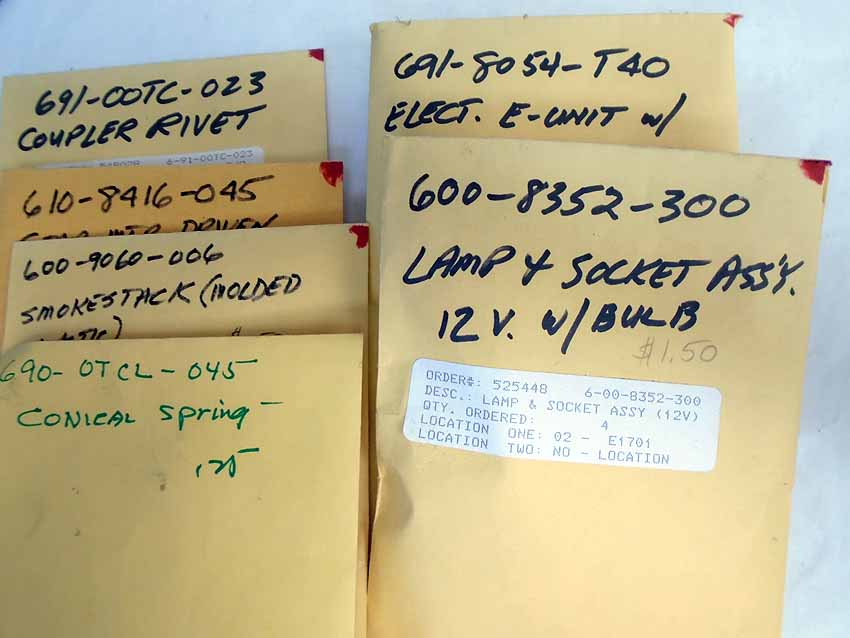 691-00TC-023
COUPLER RIVET
6-91-00TC-023
610-8416-045
DRIVEN
600-9060-006
SMOKESTACK (MOLDED
690-0TCL-045
CONICAL Spring -
.25
691-8054-T40
ELECT. E-UNIT W/
600-8352-300
LAMP & SOCKET ASS'Y.
12 V. W/BULB
$1.50
ORDER#: 525448 6-00-8352-300
DESC.: LAMP & SOCKET ASSY (12V)
QTY. ORDERED: 4
LOCATION ONE: 02 - E1701
LOCATION TWO: NO - LOCATION